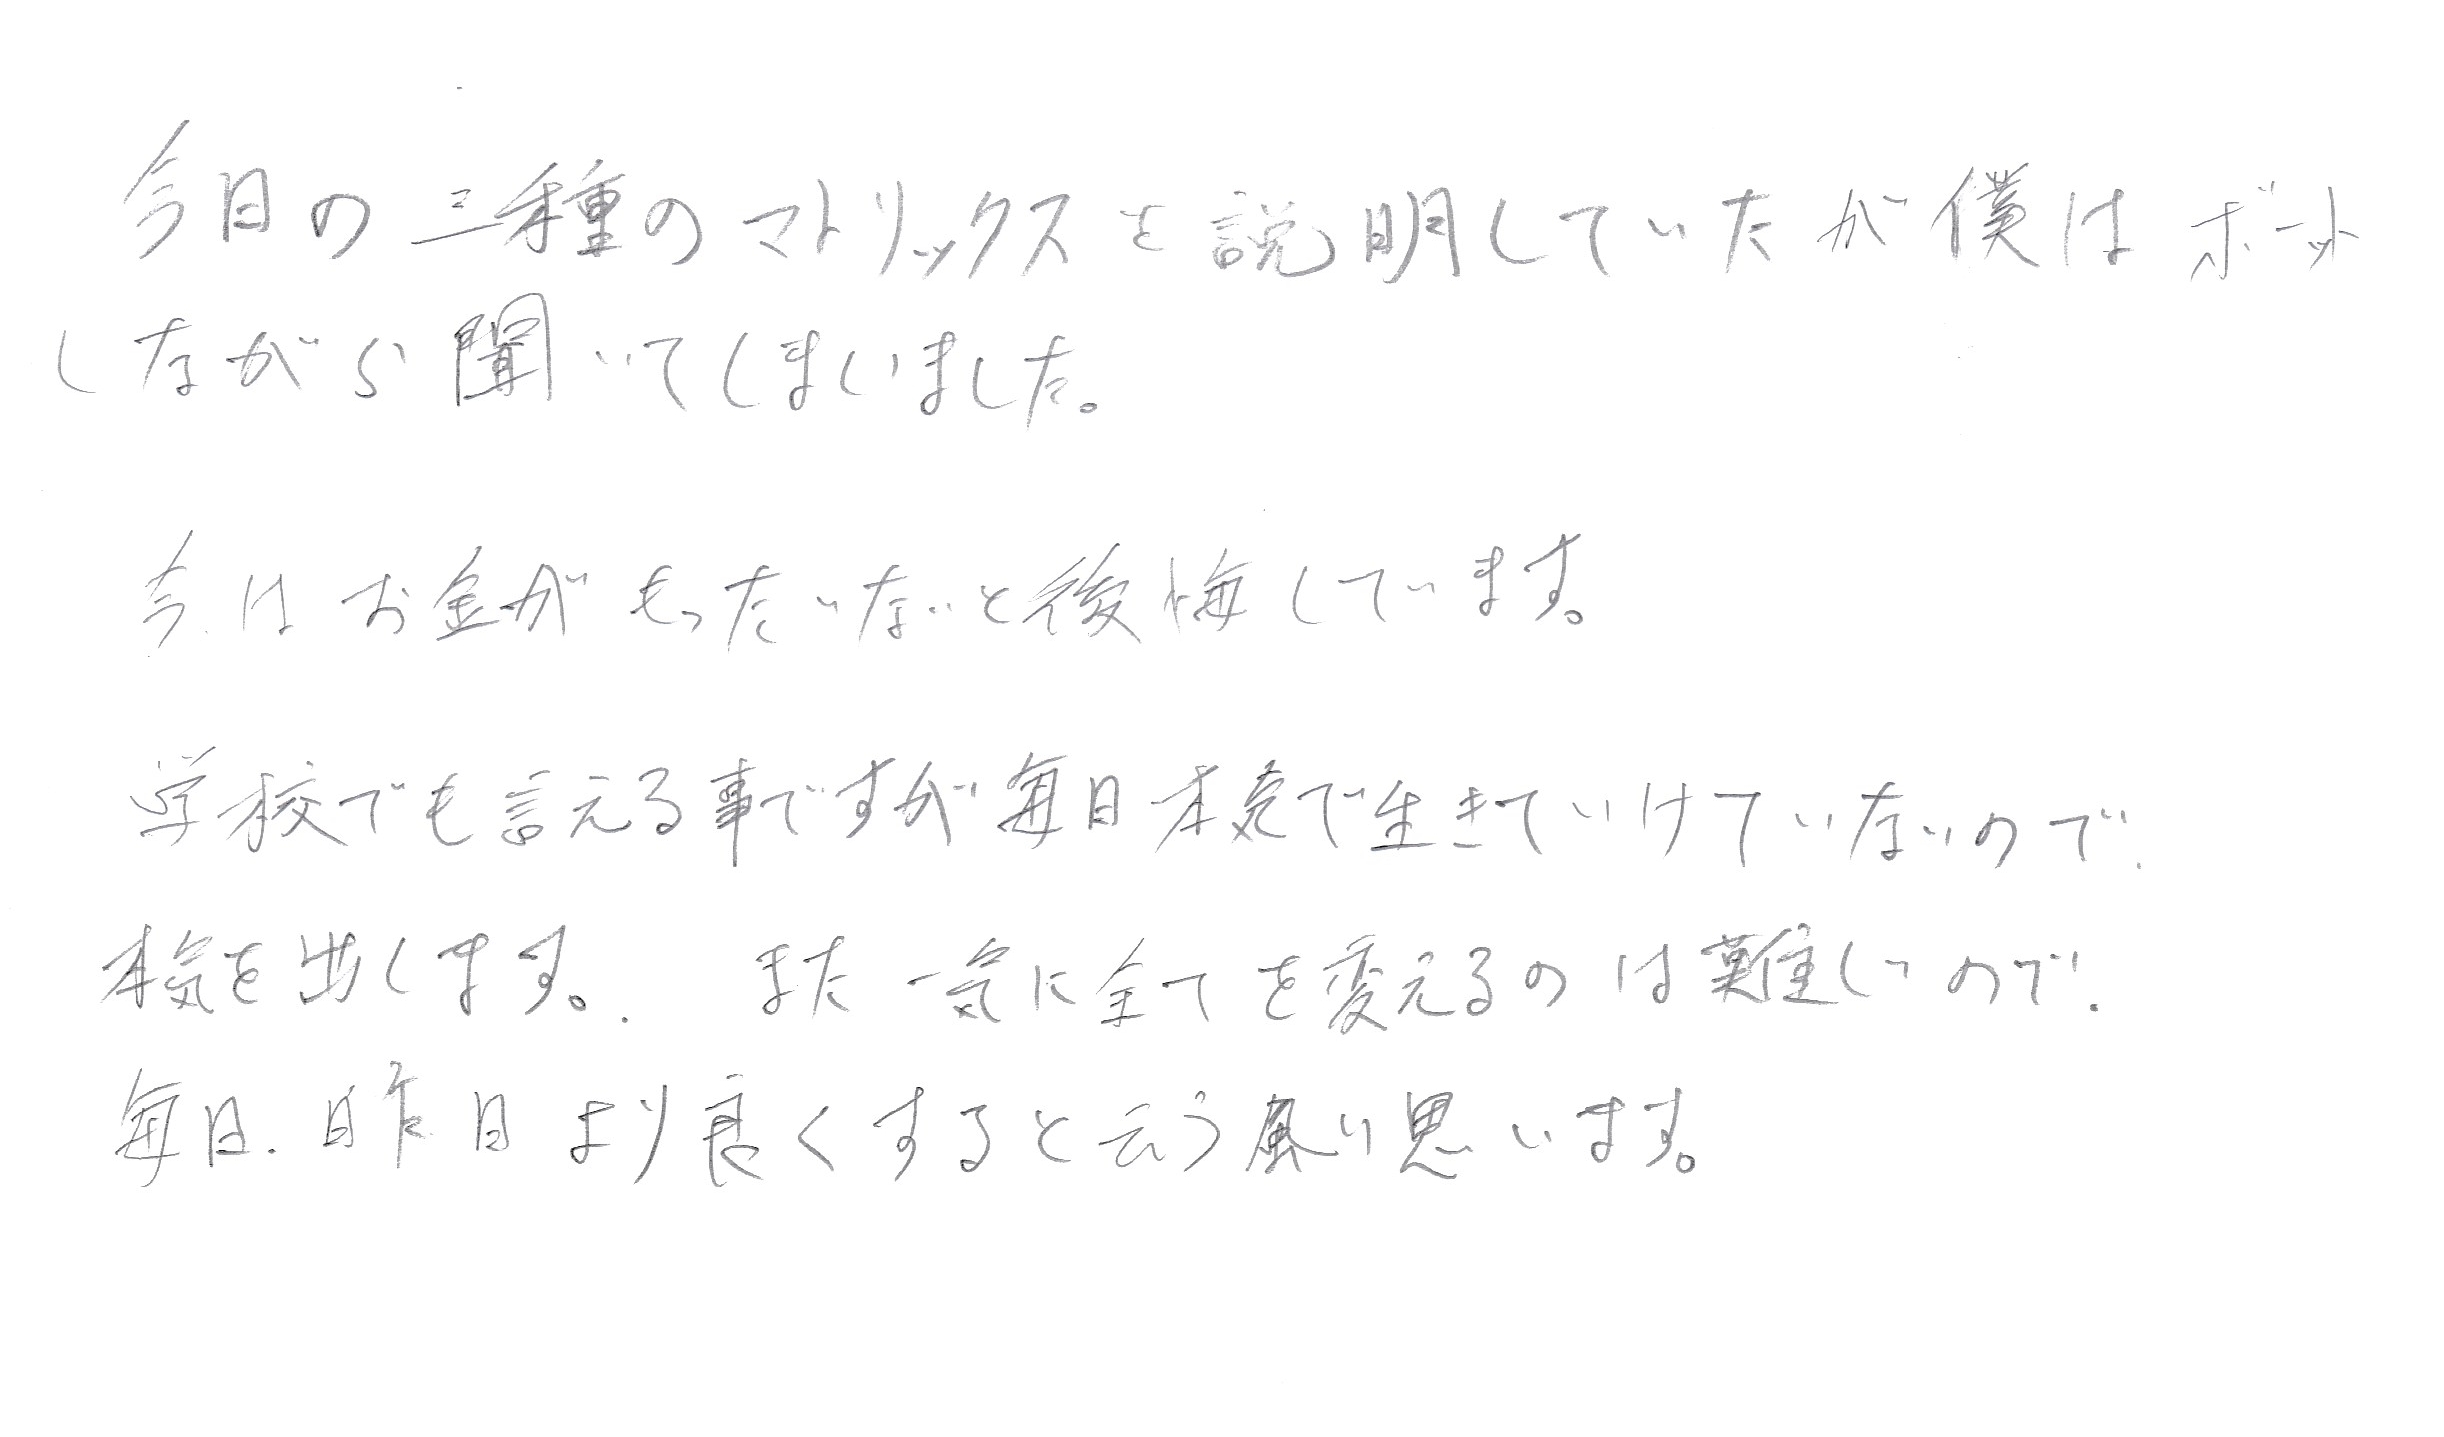 今日の三種のマトリックスを説明していたが僕はボーット
しながら聞いてしまいました。
今はお金がもったいないと後悔しています。
学校でも言える事ですが毎日本気で生きていけていないので、
本気を出します。 また一気に全てを変えるのは難しいので、
毎日、昨日より良くすると云う風に思います。